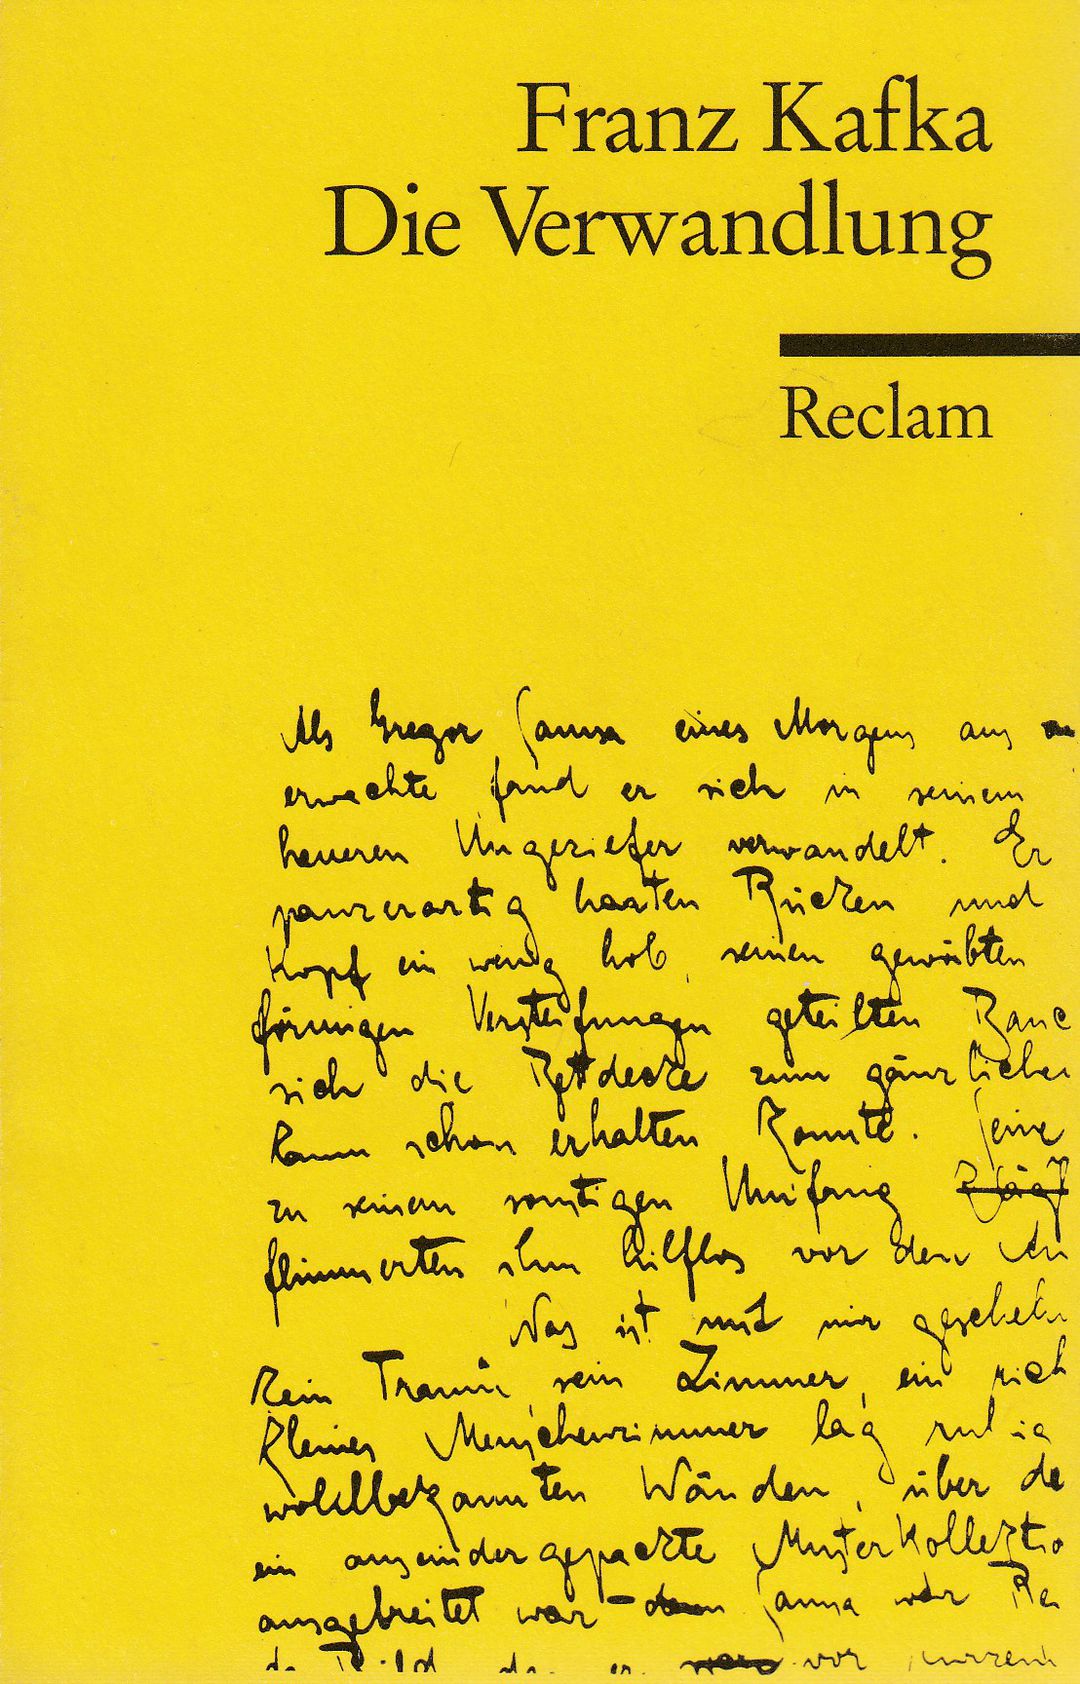 Franz Kafka
Die Verwandlung
Reclam
Als Gregor Samsa eines Morgens aus
erwachte fand er sich in seinem
heueren Ungeziefer verwandelt. Er
panzerartig harten Rücken und
Kopf ein wenig hob, seinen gewölbten
förmigen Versteifungen geteilten Bauc
sich die Bettdecke zum gänzlichen
kaum schon erhalten konnte. Seine
zu seinem sonstigen Umfang
flimmerten ihm hilflos vor den Au
Was ist mit mir gescheh
kein Traum, sein Zimmer, ein rich
kleines Menschenzimmer lag ruhig
wohlbekannten Wänden, über de
ein auseindergepackte Musterkollektio
ausgebreitet war – Samsa war Rei